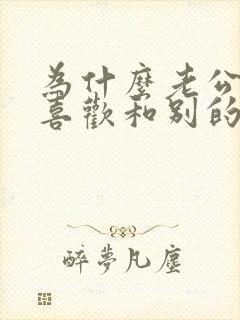 為什麼老公
喜歡和別的
醉夢凡塵